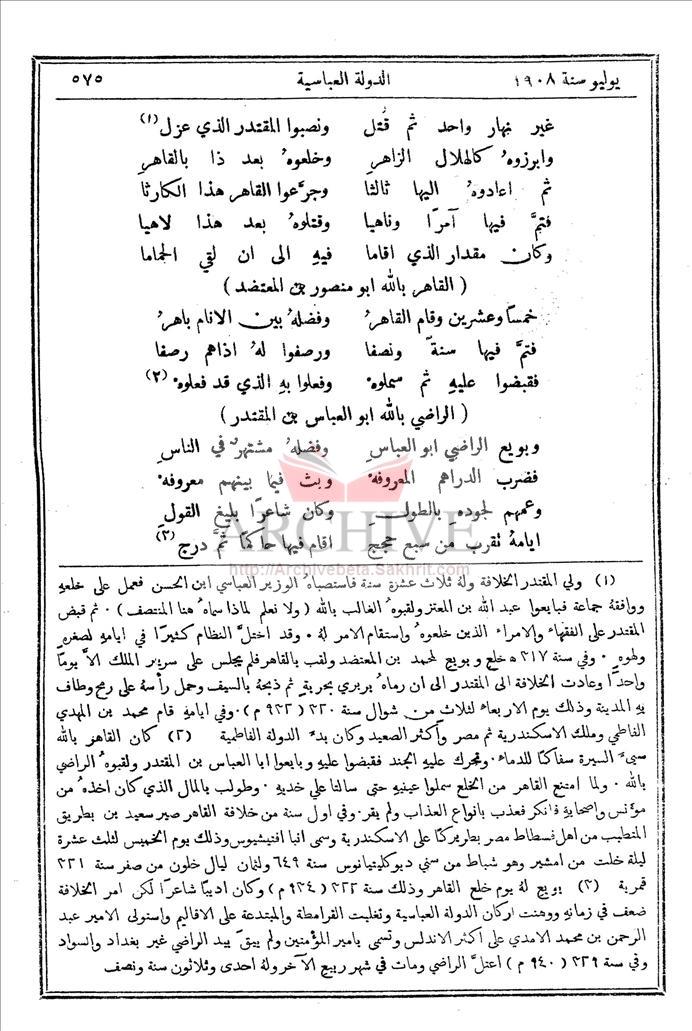 يوليو سنة ١٩٠٨ الدولة العباسية ٥٧٥
غير نهار واحد ثم قُتل ونصبوا المقتدر الذي عزل (١)
وابرزوهُ كالهلال الزاهرِ وخلعوهُ بعد ذا بالقاهرِ
ثم اعادوهُ اليها ثالثا وجرَّعوا القاهر هذا الكارثا
فتمَّ فيها آمرًا وناهيا وقتلوهُ بعد هذا لاهيا
وكان مقدار الذي اقاما فيهِ الى ان لقي الحماما
( القاهر بالله ابو منصور بن المعتضد )
خمسًا وعشرين وقام القاهرُ وفضلهُ بين الانام باهرُ
فتمَّ فيها سنةً ونصفا ورصفوا لهُ اذاهم رصفا
فقبضوا عليهِ ثم سملوه وفعلوا بهِ الذي قد فعلوه (٢)
( الراضي بالله ابو العباس بن المقتدر )
وبويع الراضي ابو العباسِ وفضلهُ مشتهرٌ في الناسِ
فضرب الدراهم المعروفه وبث فيما بينهم معروفه
وعمهم لجوده بالطولِ وكان شاعرًا بليغ القولِ
ايامهُ تقرب من سبع حججِ اقام فيها حاكمًا ثمَّ درج (٣)
ARCHIVE
http://Archivebeta.Sakhrit.com
(١) ولي المقتدر الخلافة ولهُ ثلاث عشرة سنة فاستصباهُ الوزير العباسي ابن الحسن فعمل على خلعهِ
ووافقهُ جماعة فبايعوا عبد الله بن المعتز ولقبوهُ الغالب بالله ( ولا نعلم لماذا سماهُ هنا المنتصف ) . ثم قبض
المقتدر على الفقهاء والامراء الذين خلعوهُ واستقام الامر لهُ . وقد اختلَّ النظام كثيرًا في ايامهِ لصغره
ولهوه . وفي سنة ٣١٧ ه خلع وبويع لمحمد بن المعتضد ولقب بالقاهر فلم يجلس على سرير الملك الاَّ يومًا
واحدًا وعادت الخلافة الى المقتدر الى ان رماهُ بربري بحربةٍ ثم ذبحهُ بالسيف وحمل رأسهُ على رمح وطاف
بهِ المدينة وذلك يوم الاربعاء لثلاث من شوال سنة ٣٢٠ ( ٩٣٢ م ) . وفي ايامهِ قام محمد بن المهدي
الفاطمي وملك الاسكندرية ثم مصر واكثر الصعيد وكان بدءَ الدولة الفاطمية (٢) كان القاهر بالله
سيئَ السيرة سفاكًا للدماء . وتحرك عليهِ الجند فقبضوا عليهِ وبايعوا ابا العباس بن المقتدر ولقبوهُ الراضي
بالله . ولما امتنع القاهر من الخلع سملوا عينيهِ حتى سالتا على خديهِ . وطولب بالمال الذي كان اخذهُ من
مؤنس واصحابهِ فانكر فعذب بانواع العذاب ولم يقر . وفي اول سنة من خلافة القاهر صير سعيد بن بطريق
المتطبب من اهل فسطاط مصر بطريركًا على الاسكندرية وسمى انبا افتيشيوس وذلك يوم الخميس لثلث عشرة
ليلة خلت من امشير وهو شباط من سني ديوكليتيانوس سنة ٦٤٩ ولثمان ليال خلون من صفر سنة ٣٢١
قمرية (٣) بويع لهُ يوم خلع القاهر وذلك سنة ٣٢٢ ( ٩٣٤ م ) وكان اديبًا شاعرًا لكن امر الخلافة
ضعف في زمانهِ ووهنت اركان الدولة العباسية وتغلبت القرامطة والمبتدعة على الاقاليم واستولى الامير عبد
الرحمن بن محمد الامدي على اكثر الاندلس وتسمى بامير المؤمنين ولم يبقَ بيد الراضي غير بغداد والسواد
وفي سنة ٣٢٩ ( ٩٤٠ م ) اعتلَّ الراضي ومات في شهر ربيع الآخر ولهُ احدى وثلاثون سنة ونصف